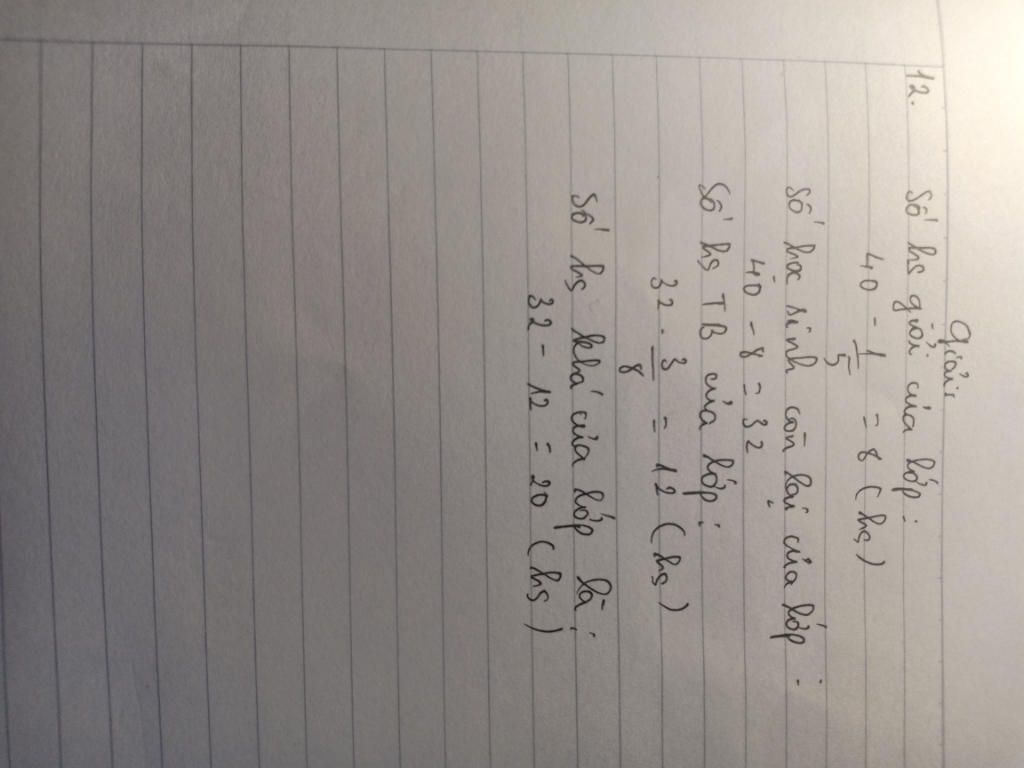 Giải:
12. Số hs giỏi của lớp:
40 - 1/5 = 8 (hs)
Số học sinh còn lại của lớp:
40 - 8 = 32
Số hs TB của lớp:
32 . 3/8 = 12 (hs)
Số hs khá của lớp là:
32 - 12 = 20 (hs)